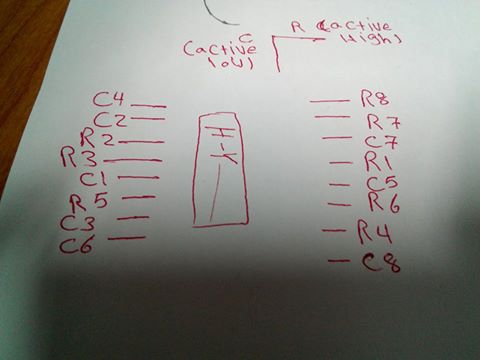 R (active
High)
C
(active
low)
C4
C2
R2
R3
C1
R5
C3
C6
R8
R7
C7
R1
C5
R6
R4
C8